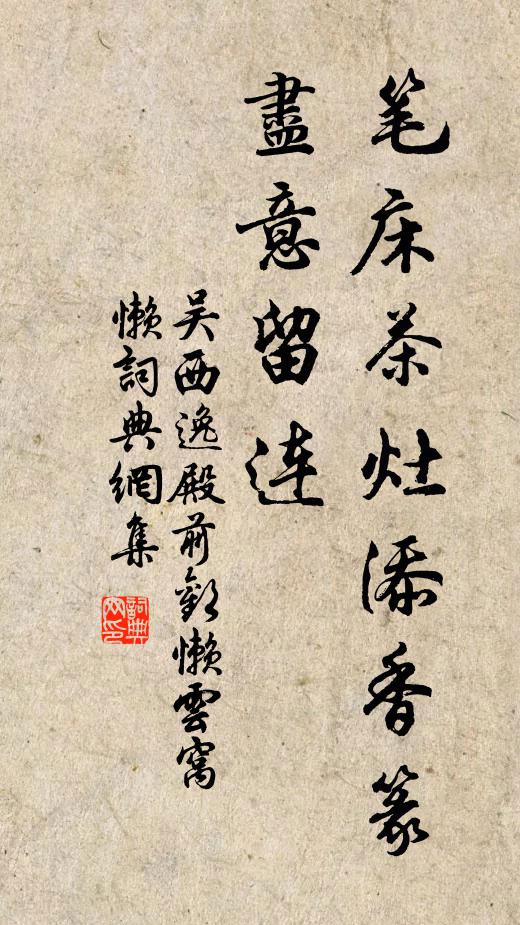 笔床茶灶添香篆
盡意留連
吴西逸殿前歡懶雲窩
懶詞典網集
詞典
网印